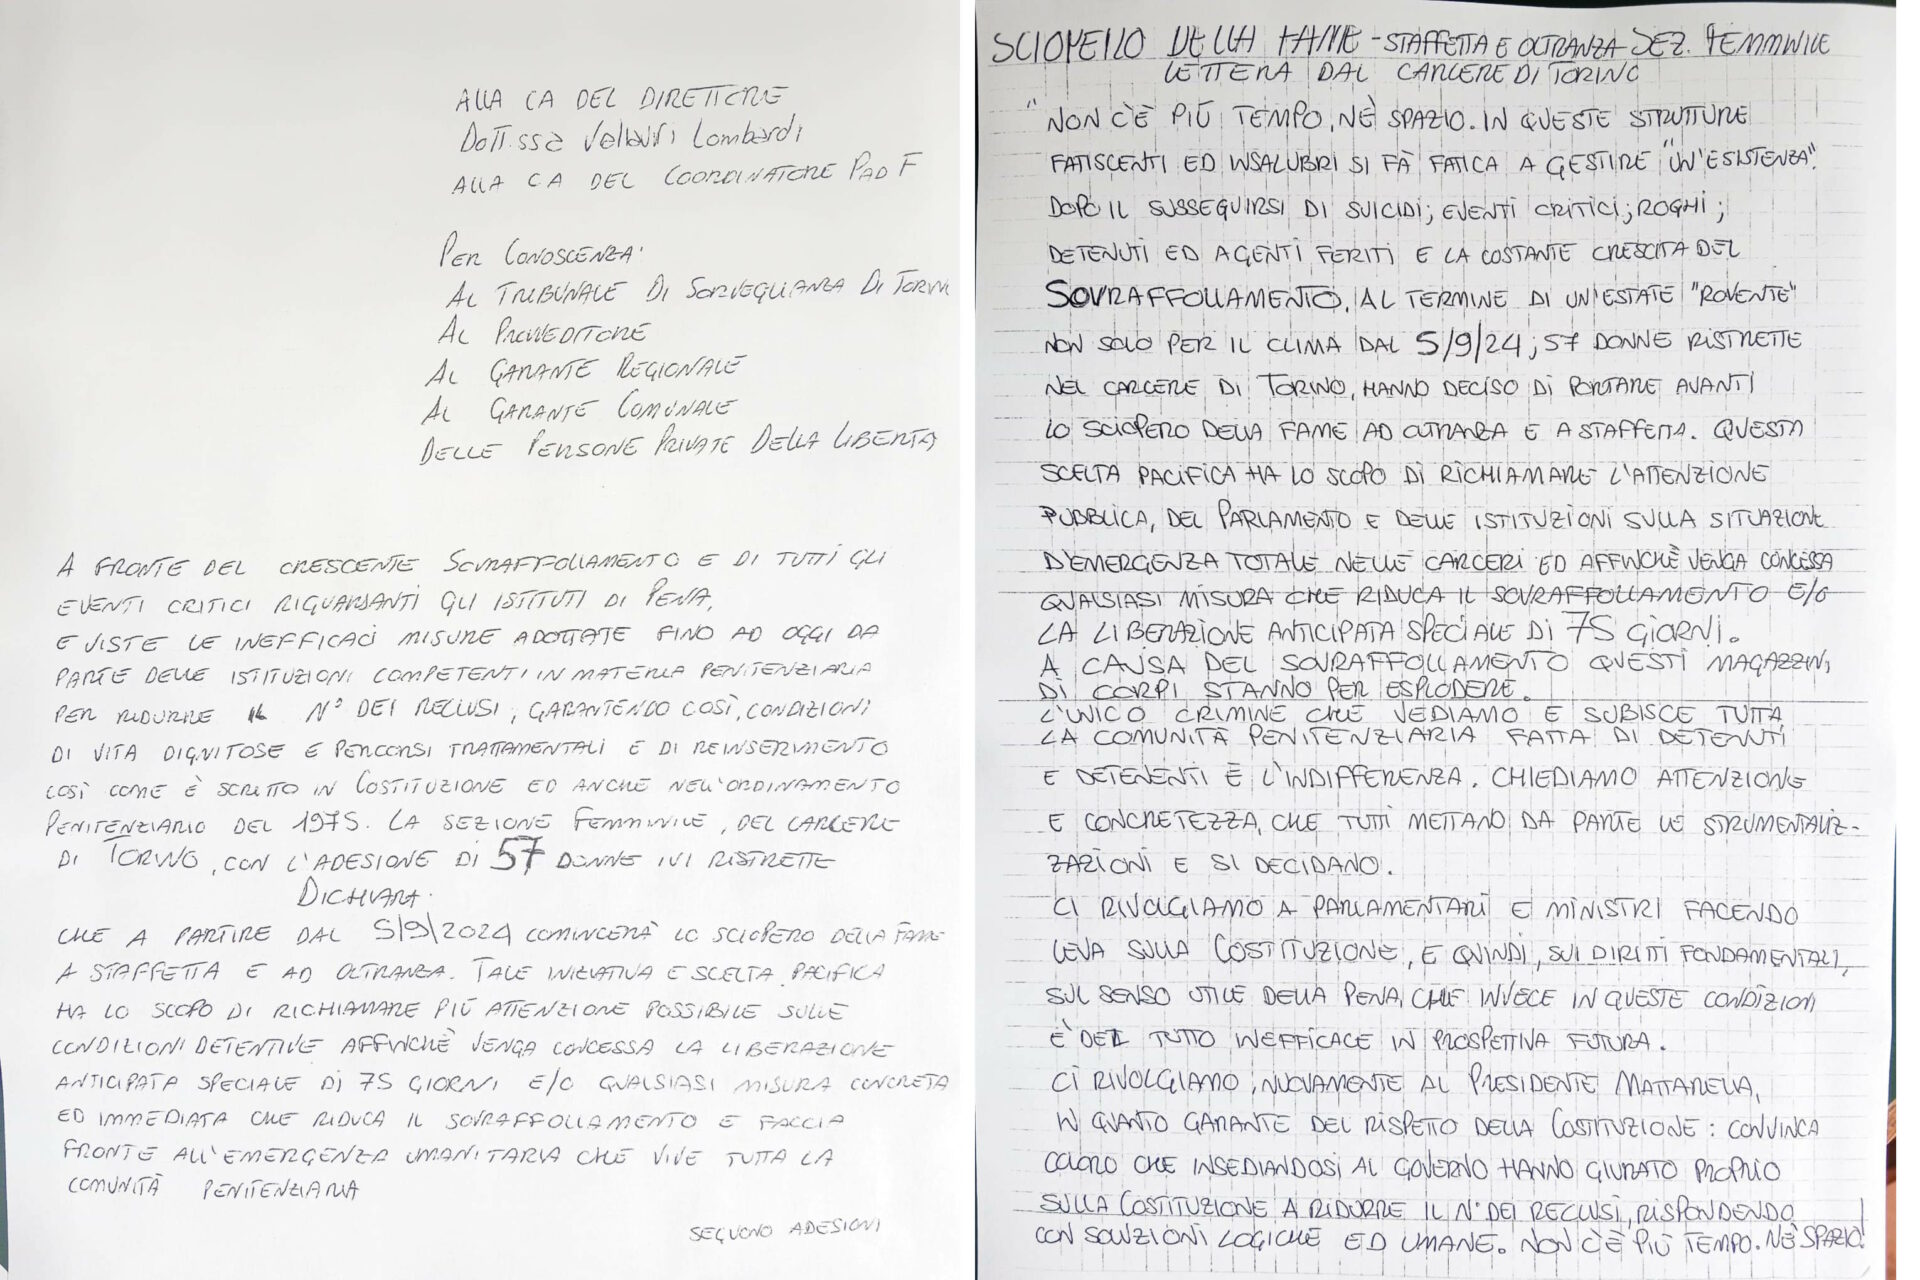 ALLA CA DEL DIRETTORE
Dott.ssa Lombardi
ALLA CA DEL COORDINATORE PAD F
PER CONOSCENZA:
AL TRIBUNALE DI SORVEGLIANZA DI TORINO
AL PROVVEDITORE
AL GARANTE REGIONALE
AL GARANTE COMUNALE
DELLE PERSONE PRIVATE DELLA LIBERTÀ
A FRONTE DEL CRESCENTE SOVRAFFOLLAMENTO E DI TUTTI GLI
EVENTI CRITICI RIGUARSANTI GLI ISTITUTI DI PENA,
E VISTE LE INEFFICACI MISURE ADOTTATE FINO AD OGGI DA
PARTE DELLE ISTITUZIONI COMPETENTI, IN MATERIA PENITENZIARIA
PER RIDURRE IL N° DEI RECLUSI, GARANTENDO COSÌ, CONDIZIONI
DI VITA DIGNITOSE E PERCORSI TRATTAMENTALI E DI REINSERIMENTO
COSÌ COME È SCRITTO IN COSTITUZIONE ED ANCHE NELL'ORDINAMENTO
PENITENZIARIO DEL 1975. LA SEZIONE FEMMINILE, DEL CARCERE
DI TORINO, CON L'ADESIONE DI 57 DONNE IVI RISTRETTE
DICHIARA:
CHE A PARTIRE DAL 5/9/2024 COMINCERÀ LO SCIOPERO DELLA FAME
A STAFFETTA E AD OLTRANZA. TALE INIZIATIVA E SCELTA PACIFICA
HA LO SCOPO DI RICHIAMARE PIÙ ATTENZIONE POSSIBILE SULLE
CONDIZIONI DETENTIVE AFFINCHÈ VENGA CONCESSA LA LIBERAZIONE
ANTICIPATA SPECIALE DI 75 GIORNI E/O QUALSIASI MISURA CONCRETA
ED IMMEDIATA CHE RIDUCA IL SOVRAFFOLLAMENTO E FACCIA
FRONTE ALL'EMERGENZA UMANITARIA CHE VIVE TUTTA LA
COMUNITÀ PENITENZIARIA
SEGUONO ADESIONI
SCIOPERO DELLA FAME - STAFFETTA E OLTRANZA SEZ. FEMMINILE
LETTERA DAL CARCERE DI TORINO
"NON C'È PIÙ TEMPO, NÈ SPAZIO. IN QUESTE STRUTTURE
FATISCENTI ED INSALUBRI SI FÀ FATICA A GESTIRE "UN'ESISTENZA".
DOPO IL SUSSEGUIRSI DI SUICIDI; EVENTI CRITICI; ROGHI;
DETENUTI ED AGENTI FERITI E LA COSTANTE CRESCITA DEL
SOVRAFFOLLAMENTO. AL TERMINE DI UN'ESTATE "ROVENTE"
NON SOLO PER IL CLIMA DAL 5/9/24; 57 DONNE RISTRETTE
NEL CARCERE DI TORINO, HANNO DECISO DI PORTARE AVANTI
LO SCIOPERO DELLA FAME AD OLTRANZA E A STAFFETTA. QUESTA
SCELTA PACIFICA HA LO SCOPO DI RICHIAMARE L'ATTENZIONE
PUBBLICA, DEL PARLAMENTO E DELLE ISTITUZIONI SULLA SITUAZIONE
D'EMERGENZA TOTALE NELLE CARCERI ED AFFINCHÈ VENGA CONCESSA
QUALSIASI MISURA CHE RIDUCA IL SOVRAFFOLLAMENTO E/O
LA LIBERAZIONE ANTICIPATA SPECIALE DI 75 GIORNI.
A CAUSA DEL SOVRAFFOLLAMENTO QUESTI MAGAZZINI
DI CORPI STANNO PER ESPLODERE.
L'UNICO CRIMINE CHE VEDIAMO E SUBISCE TUTTA
LA COMUNITÀ PENITENZIARIA FATTA DI DETENUTI
E DETENENTI È L'INDIFFERENZA. CHIEDIAMO ATTENZIONE
E CONCRETEZZA, CHE TUTTI METTANO DA PARTE LE STRUMENTALIZ-
ZAZIONI E SI DECIDANO.
CI RIVOLGIAMO A PARLAMENTARI E MINISTRI FACENDO
LEVA SULLA COSTITUZIONE, E QUINDI, SUI DIRITTI FONDAMENTALI,
SUL SENSO UTILE DELLA PENA, CHE INVECE IN QUESTE CONDIZIONI
È DEL TUTTO INEFFICACE IN PROSPETTIVA FUTURA.
CI RIVOLGIAMO, NUOVAMENTE AL PRESIDENTE MATTARELLA,
IN QUANTO GARANTE DEL RISPETTO DELLA COSTITUZIONE: CONVINCA
COLORO CHE INSEDIANDOSI AL GOVERNO HANNO GIURATO PROPRIO
SULLA COSTITUZIONE A RIDURRE IL N° DEI RECLUSI, RISPONDENDO
CON SOLUZIONI LOGICHE ED UMANE. NON C'È PIÙ TEMPO. NÈ SPAZIO!